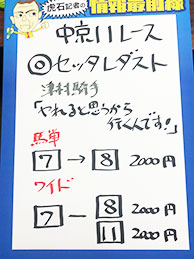 虎石記者の情報最前線
中京11レース
◎セッタレダスト
津村騎手
「やれると思うから
行くんです!」
馬単
7→8 2000円
ワイド
7-8 2000円
11 2000円